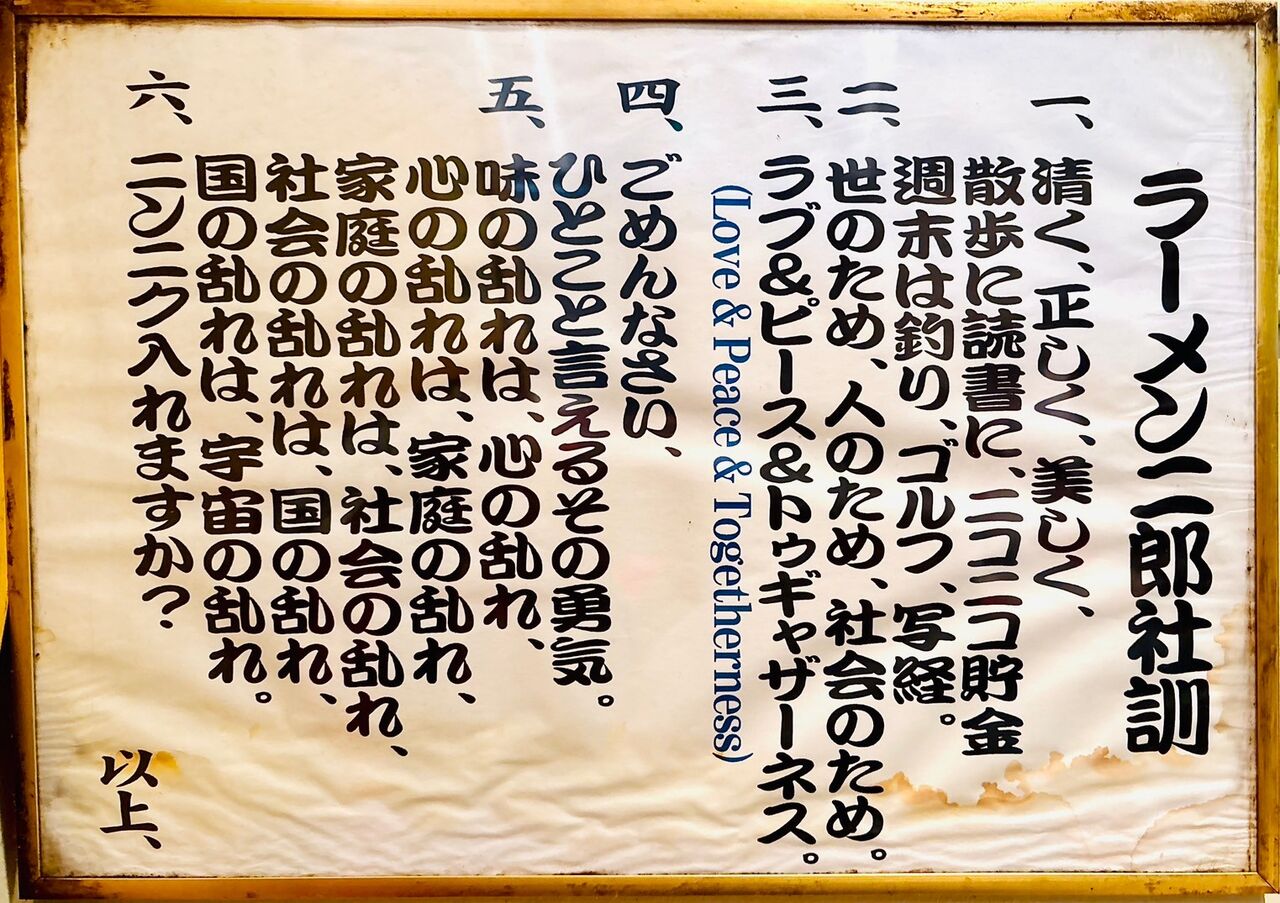 ラーメン二郎社訓
一、清く、正しく、美しく、
散歩に読書に、ニコニコ貯金
週末は釣り、ゴルフ、写経。
二、世のため、人のため、社会のため。
三、ラブ&ピース&トゥギャザーネス。
(Love & Peace & Togetherness)
四、ごめんなさい、
ひとこと言えるその勇気。
五、味の乱れは、心の乱れ、
心の乱れは、家庭の乱れ、
家庭の乱れは、社会の乱れ、
社会の乱れは、国の乱れ、
国の乱れは、宇宙の乱れ。
六、ニンニク入れますか?
以上、